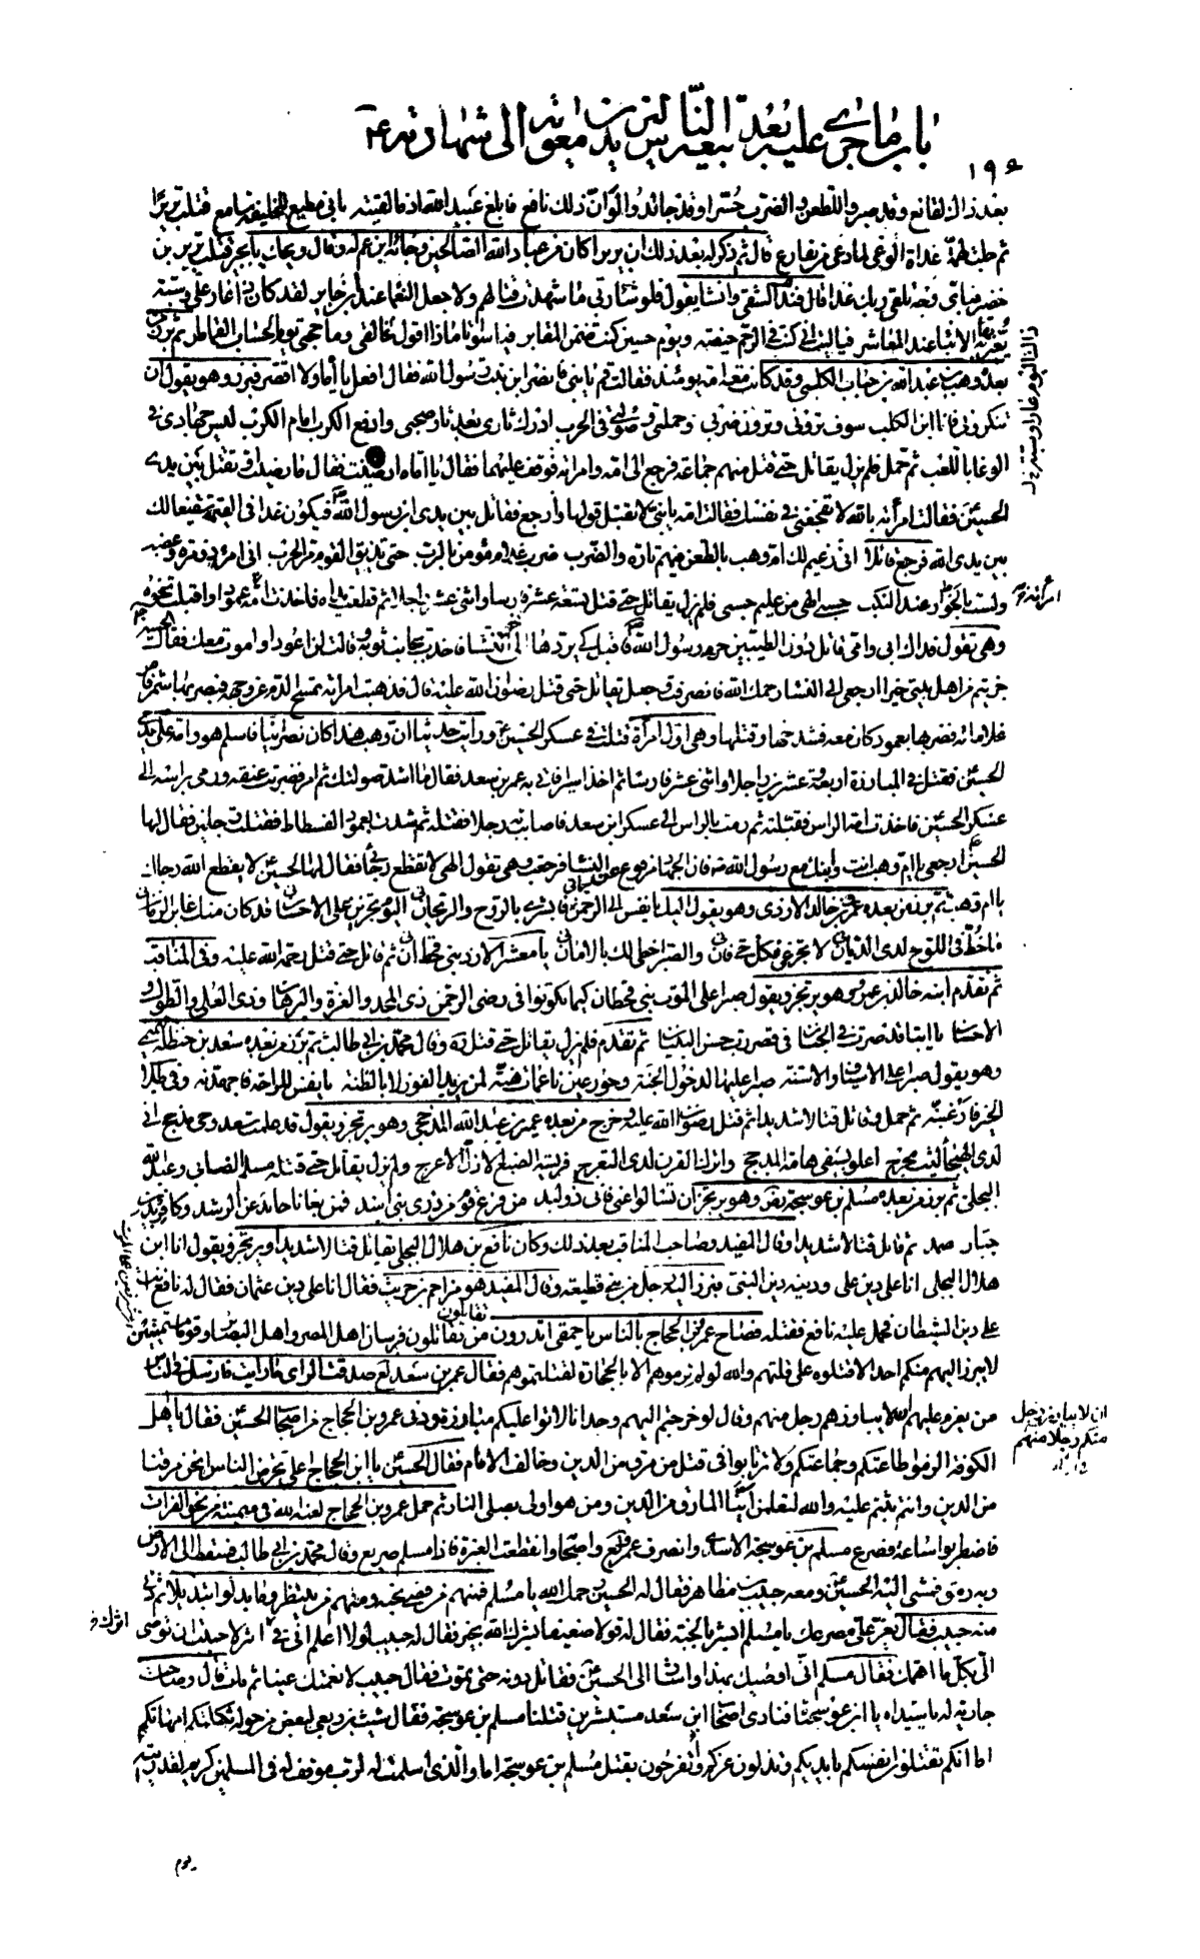 باب ما جرى عليه بعد بيعة الناس ليزيد بن معاوية الى شهادته ع
١٩٤
بعد ذاك لقانع وقد صبروا للطعن والضرب حسرا وقد جالدوا لو ان ذلك نافع فابلغ عبيد الله اذ ما لقيته باني مطيع للخليفة سامع قتلت بريرا
ثم جلت لهمة غداة الوغى لما دعى من يقارع قال ثم ذكر له بعد ذلك ان بريرا كان من عباد الله الصالحين وجائه ابن عم له وقال ويحك يا بحير قتلت برير بن
خضير فباي وجه تلقى ربك غدا قال فندم الشقي وانشا يقول فلو شاء ربي ما شهدت قتالهم ولا جعل النعماء عند ابن جابر لقد كان ذا عارا علي وسبة
يعير بها الابناء عند المعاشر فيا ليت اني كنت في الرحم حيضة ويوم حسين كنت ضمن المقابر فيا سوأتا ماذا اقول لخالقي وما حجتي يوم الحساب القماطر ثم برز من
بعده وهب بن عبد الله بن حباب الكلبي وقد كانت معه امه يومئذ فقالت قم يا بني فانصر ابن بنت رسول الله فقال افعل يا اماه ولا اقصر فبرز وهو يقول ان
تنكروني فانا ابن الكلب سوف تروني وترون ضربي وحملتي وصولتي في الحرب ادرك ثاري بعد ثار صحبي وادفع الكرب امام الكرب ليس جهادي في
الوغا باللعب ثم حمل فلم يزل يقاتل حتى قتل منهم جماعة فرجع الى امه وامراته فوقف عليهما فقال يا اماه ارضيت فقال ما رضيت او تقتل بين يدي
الحسين فقالت امرأته بالله لا تفجعني في نفسك فقالت امه يا بني لا تقبل قولها وارجع فقاتل بين يدي ابن رسول الله فيكون غدا في القيمة شفيعا لك
بين يدي الله فرجع قائلا اني زعيم لك ام وهب بالطعن فيهم تارة والضرب ضرب غلام مؤمن بالرب حتى يذيق القوم مر الحرب اني امرؤ ذو مرة وعصب
ولست بالخوار عند النكب حسبي الهي من عليم حسبي فلم يزل يقاتل حتى قتل تسعة عشر فارسا واثنى عشر راجلا ثم قطعت يداه فاخذت امه عمودا واقبلت نحوه
وهي تقول فداك ابي وامي قاتل دون الطيبين حرم رسول الله فاقبل كي يردها الى النساء فاخذت بجانب ثوبه وقالت لن اعود او اموت معك فقال الحسين
جزيتم من اهل بيتي خيرا ارجعي الى النساء رحمك الله فانصرفت وجعل يقاتل حتى قتل رضوان الله عليه قال فذهبت امراته تمسح الدم عن وجهه فبصر بها شمر فامر
غلاما له فضربها بعمود كان معه فشدخها وقتلها وهي اول امرأة قتلت في عسكر الحسين ورايت حديثا ان وهب هذا كان نصرانيا فاسلم هو وامه على يدي
الحسين فقتل في المبارزة اربعة وعشرين راجلا واثنى عشر فارسا ثم اخذ اسيرا فاتي به عمر بن سعد فقال ما اشد صولتك ثم امر فضربت عنقه ورمي براسه الى
عسكر الحسين فاخذت امه الراس فقبلته ثم رمت بالراس الى عسكر ابن سعد فاصابت به رجلا فقتلته ثم شدت بعمود الفسطاط فقتلت رجلين فقال لها
الحسين ارجعي يا ام وهب انت وابنك مع رسول الله ص فان الجهاد مرفوع عن النساء فرجعت وهي تقول الهي لا تقطع رجائي فقال لها الحسين لا يقطع الله رجاك
يا ام وهب ثم برز من بعده عمرو بن خالد الازدي وهو يقول اليك يا نفس الى الرحمن فابشري بالروح والريحان اليوم تجزين على الاحسان قد كان منك غابر الزمان
ما خط في اللوح لدى الديان لا تجزعي فكل حي فان والصبر احظى لك بالامان يا معشر الازد بني قحطان ثم قاتل حتى قتل رحمة الله عليه وفي المناقب
ثم تقدم ابنه خالد بن عمرو وهو يرتجز ويقول صبرا على الموت بني قحطان كيما تكونوا في رضى الرحمن ذي المجد والعزة والبرهان وذي العلى والطول و
الاحسان يا ابتا قد صرت في الجنان في قصر رب حسن البنيان ثم تقدم فلم يزل يقاتل حتى قتل ره وقال محمد بن ابي طالب ثم برز من بعده سعد بن حنظلة التميمي
وهو يقول صبرا على الاسياف والاسنة صبرا عليها لدخول الجنة وحور عين ناعمات هنه لمن يريد الفوز لا بالظنة يا نفس للراحة فاجهدنه وفي طلاب
الخير فارغبنه ثم حمل وقاتل قتالا شديدا ثم قتل رضوان الله عليه وخرج من بعده عمير بن عبد الله المذحجي وهو يرتجز ويقول قد علمت سعد وحي مذحج اني
لدى الهيجا ليث محرج اعلو بسيفي هامة المدجج واترك القرن لدى التعرج فريسة الضبع الازل الاعرج ولم يزل يقاتل حتى قتله مسلم الضبابي وعبد الله
البجلي ثم برز من بعده مسلم بن عوسجة ره وهو يرتجز ان تسالوا عني فاني ذو لبد من فرع قوم من ذرى بني اسد فمن بغانا حائد عن الرشد وكافر بدين
جبار صمد ثم قاتل قتالا شديدا وقال المفيد وصاحب المناقب بعد ذلك وكان نافع بن هلال البجلي يقاتل قتالا شديدا ويرتجز ويقول انا ابن
هلال البجلي انا على دين علي ودينه دين النبي فبرز اليه رجل من بني قطيعة وقال المفيد هو مزاحم بن حريث فقال انا على دين عثمان فقال له نافع انت
على دين الشيطان فحمل عليه نافع فقتله فصاح عمرو بن الحجاج بالناس يا حمقى اتدرون من تقاتلون تقاتلون فرسان اهل المصر واهل البصائر وقوما مستميتين
لا يبرز اليهم منكم احد الا قتلوه على قلتهم والله لو لم ترموهم الا بالحجارة لقتلتموهم فقال عمر بن سعد لع صدقت الراي ما رايت فارسل في الناس
من يعزم عليهم ان لا يبارزهم رجل منهم وقال لو خرجتم اليهم وحدانا لاتوا عليكم مبارزة ودنى عمرو بن الحجاج من اصحاب الحسين فقال يا اهل
الكوفة الزموا طاعتكم وجماعتكم ولا ترتابوا في قتل من مرق من الدين وخالف الامام فقال الحسين يا ابن الحجاج اعلي تحرض الناس انحن مرقنا
من الدين وانتم ثبتم عليه والله لتعلمن اينا المارق من الدين ومن هو اولى بصلي النار ثم حمل عمرو بن الحجاج لعنه الله في ميمنته من نحو الفرات
فاضطربوا ساعة فصرع مسلم بن عوسجة الاسدي وانصرف عمرو واصحابه وانقطعت الغبرة فاذا مسلم صريع وقال محمد بن ابي طالب فسقط الى الارض
وبه رمق فمشى اليه الحسين ومعه حبيب بن مظاهر فقال له الحسين رحمك الله يا مسلم فمنهم من قضى نحبه ومنهم من ينتظر وما بدلوا تبديلا ثم دنى
منه حبيب فقال يعز علي مصرعك يا مسلم ابشر بالجنة فقال له قولا ضعيفا بشرك الله بخير فقال له حبيب لولا اعلم اني في الاثر لاحببت ان توصي
الي بكل ما اهمك فقال مسلم فاني اوصيك بهذا واشار الى الحسين فقاتل دونه حتى تموت فقال حبيب لانعمنك عينا ثم مات قال وصاحت
جارية له يا سيداه يا ابن عوسجتاه فنادى اصحاب ابن سعد مستبشرين قتلنا مسلم بن عوسجة فقال شبث بن ربعي لبعض من حوله ثكلتكم امهاتكم
اما انكم تقتلون انفسكم بايديكم وتذلون عزكم اتفرحون بقتل مسلم بن عوسجة اما والذي اسلمت له لرب موقف له في المسلمين كريم لقد رايته
امرأته
ان لا يبارز رجل
منكم رجلا منهم
يوم